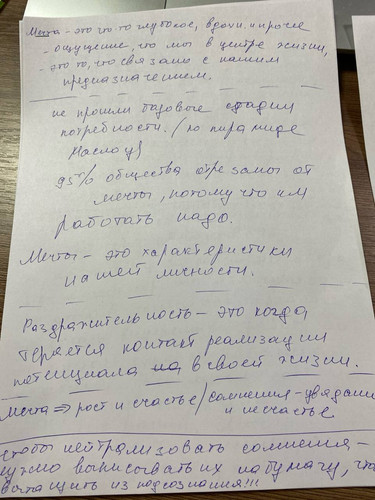 Мечта - это что-то глубокое, вдохн. и прочее
- ощущение, что мы в центре жизни,
- это то, что связано с нашим
предназначением.
не прошли базовые стадии
потребности. / по пирамиде
Маслоу)
95% общества отрезаны от
мечты, потому что им
работать надо.
Мечты - это характеристики
нашей личности.
Раздражительность - это когда
теряется контакт реализации
потенциала на в своей жизни.
Мечта => рост и счастье / сомнения - увядание
и несчастье
чтобы нейтрализовать сомнения -
нужно выписывать их на бумагу, что
вытащить из подсознания!!!